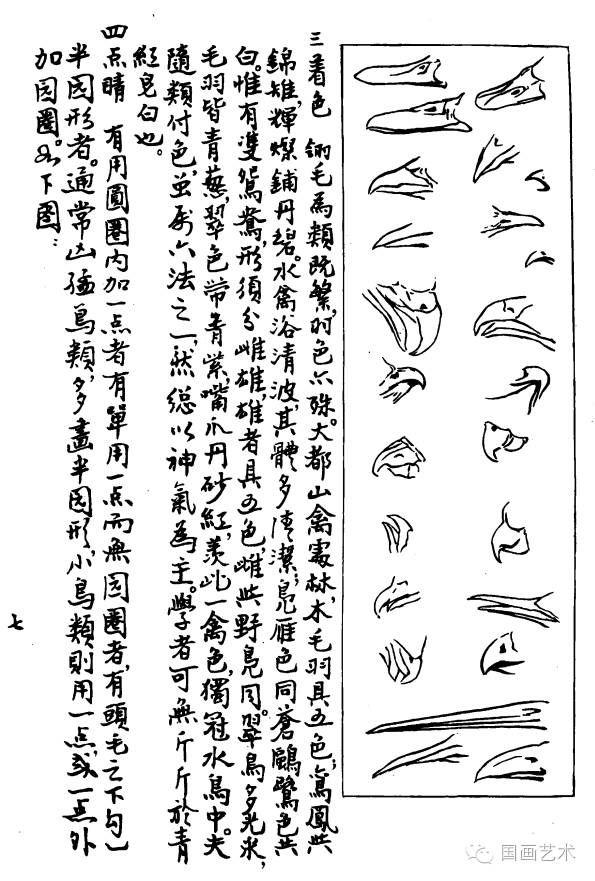 三 着色 翎毛為類既繁,羽色亦殊。大都山禽處林木,毛羽具五色;鸞鳳与
錦雉,輝燦鋪丹碧。水禽浴清波,其體多清潔;鳧雁色同蒼鷗鷺色共
白。惟有雙鴛鴦,形須分雌雄,雄者具五色,雌与野鳧同。翠鳥多光彩,
毛羽皆青蔥,翠色带青紫,嘴爪丹砂紅,羨此一禽色,獨冠水鳥中。夫
隨類付色,虽属六法之一,然總以神氣為主。學者可無斤斤於青
紅皂白也。
四 点睛 有用圓圈内加一点者有單用一点而無园圈者,有頭毛之下勾一
半园形者。通常凶猛鳥類,多畫半园形,小鳥類則用一点或一点外
加园圈。如下图:
七
国画艺术